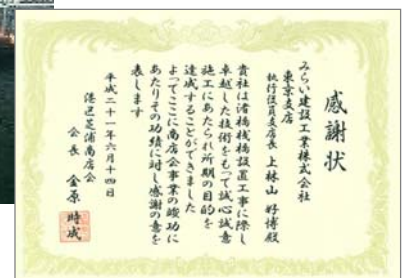 感謝状
みらい建設工業株式会社
東京支店
執行役員支店長 上林山 好博殿
貴社は渚橋桟橋設置工事に際し
卓越した技術をもって誠心誠意
施工にあたられ所期の目的を
達成することができました
よってここに商店会事業の竣功に
あたりその功績に対し感謝の意を
表します
平成二十一年六月十四日
港区芝浦商店会
会長 金原 時成